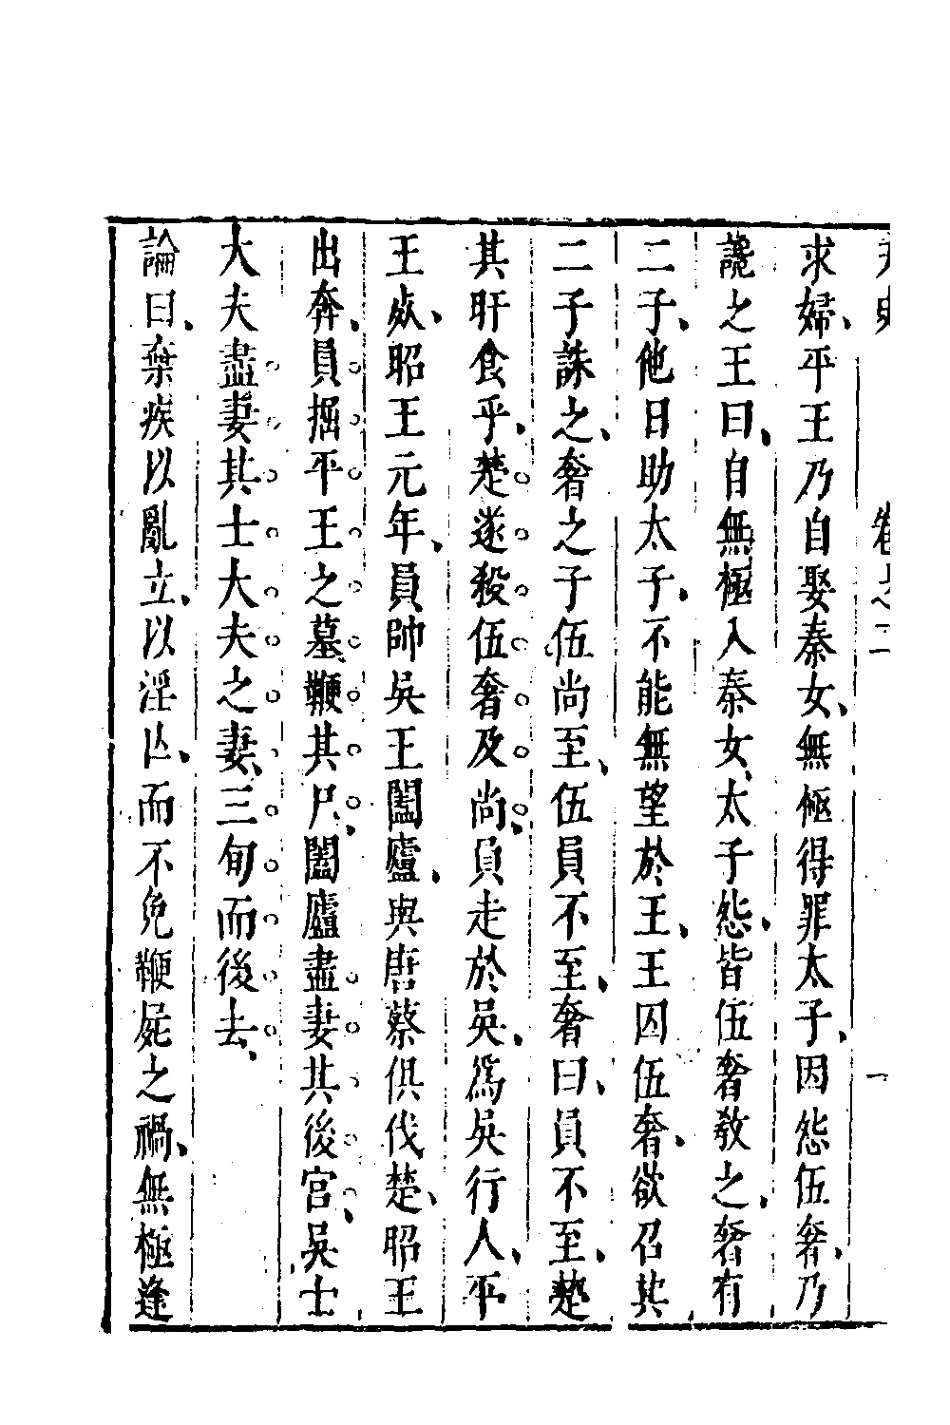 卷之二
一
求婦、平王乃自娶秦女、無極得罪太子、因怨伍奢、乃
讒之王曰、自無極入秦女、太子怨、皆伍奢教之、奢有
二子、他日助太子、不能無望於王、王囚伍奢、欲召其
二子誅之、奢之子伍尚至、伍員不至、奢曰、員不至、楚
其旰食乎、楚遂殺伍奢及尚、員走於吳、為吳行人、平
王死、昭王元年、員帥吳王闔廬、與唐蔡俱伐楚、昭王
出奔、員掘平王之墓鞭其尸、闔廬盡妻其後宮、吳士
大夫盡妻其士大夫之妻、三旬而後去、
論曰、棄疾以亂立、以淫亾、而不免鞭屍之禍、無極逢